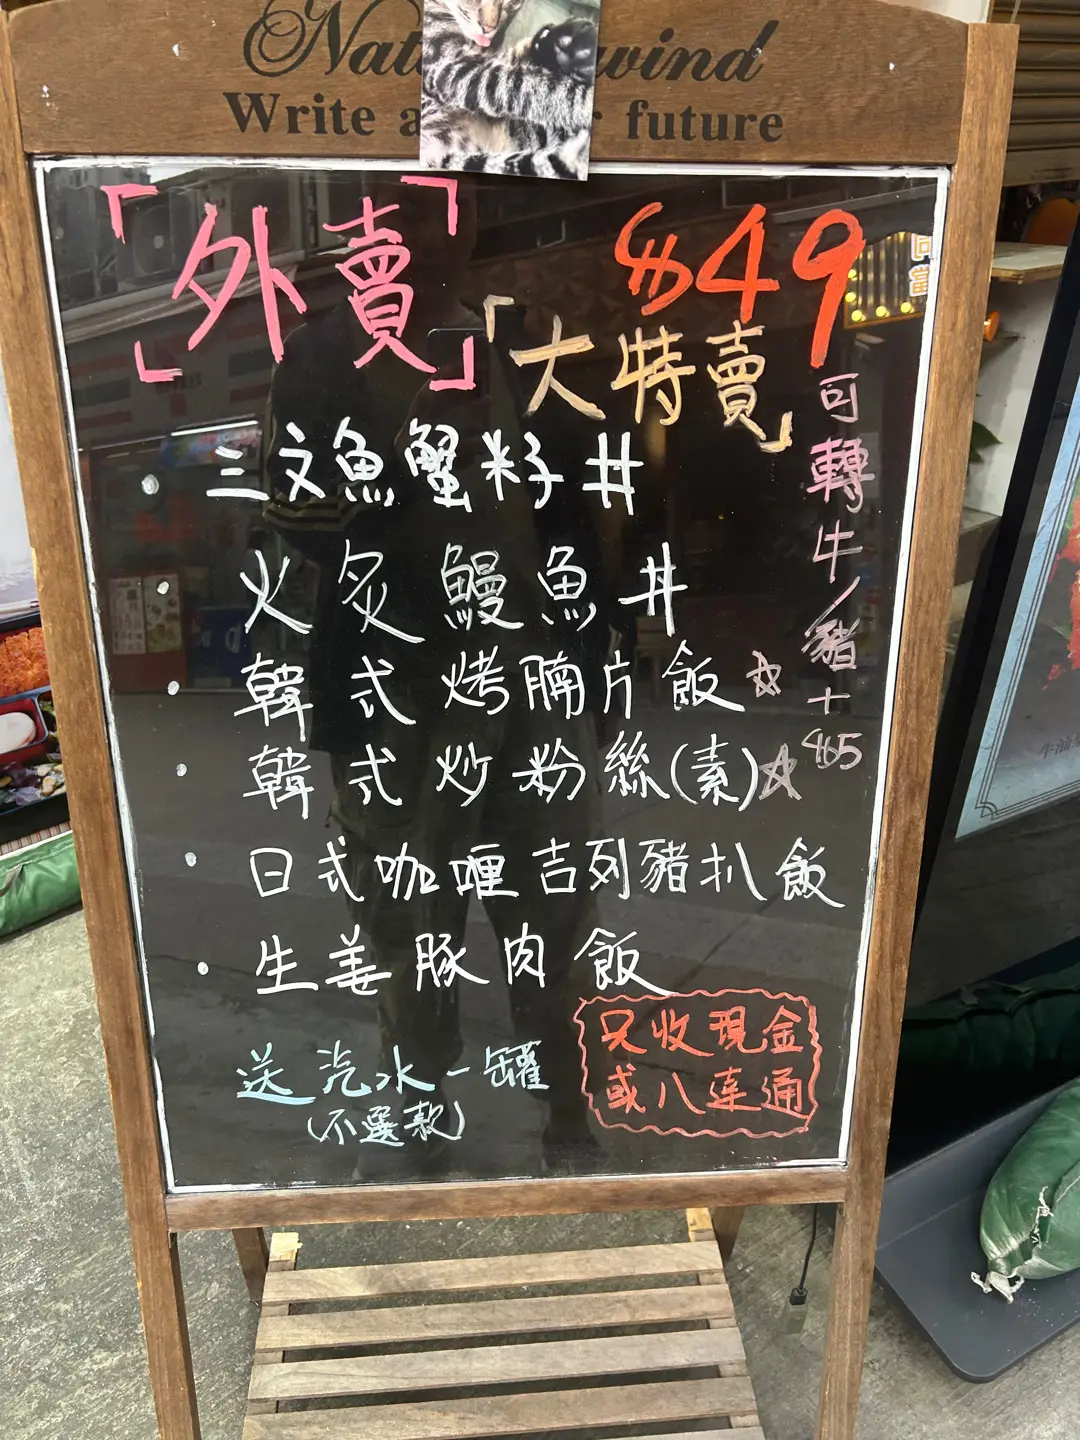 Nat wind
Write a r future
「外賣」 $49
「大特賣」
· 三文魚蟹籽丼
· 火炙鰻魚丼
· 韓式烤腩片飯☆
· 韓式炒粉絲(素)☆
· 日式咖喱吉列豬扒飯
· 生姜豚肉飯
可轉牛/豬+$5
送汽水一罐
(不選款)
只收現金
或八達通